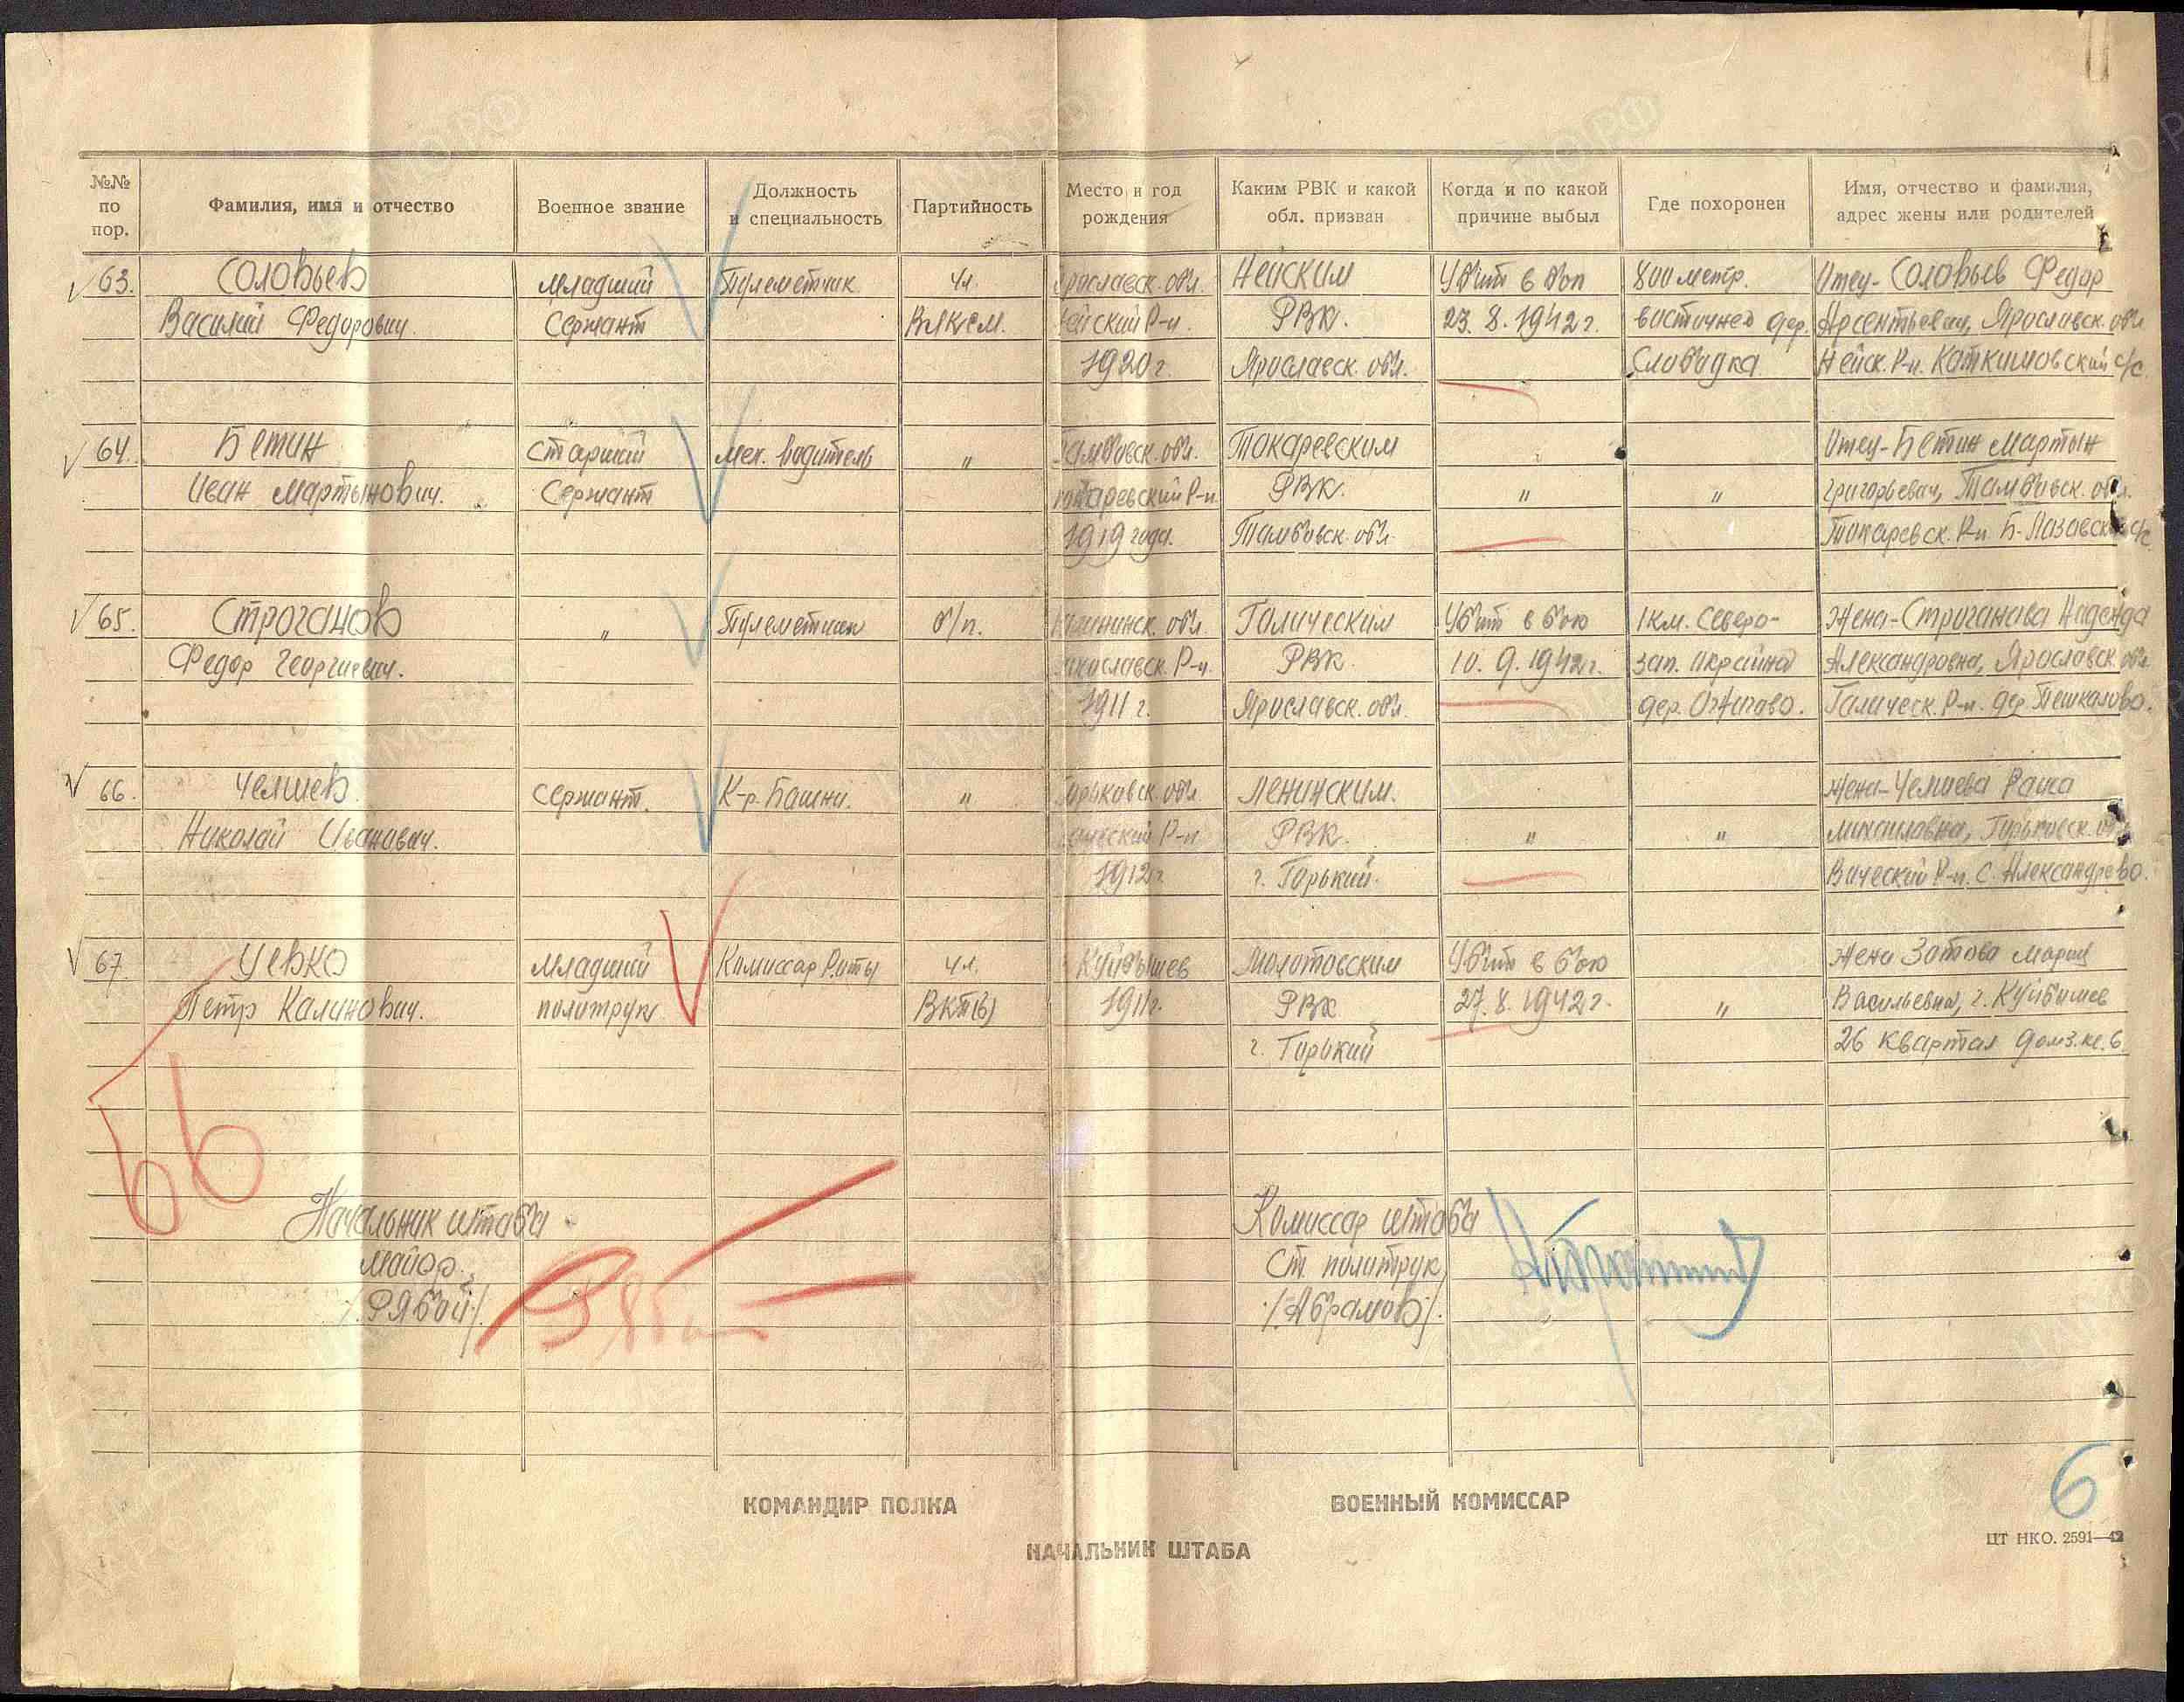 №№ по пор.
Фамилия, имя и отчество
Военное звание
Должность и специальность
Партийность
Место и год рождения
Каким РВК и какой обл. призван
Когда и по какой причине выбыл
Где похоронен
Имя, отчество и фамилия, адрес жены или родителей
63. Соловьев Младший Пулеметчик чл. Ярославск. обл. Нейским Убит в бою 800 метр. Отец - Соловьев Федор
Василий Федорович. Сержант ВЛКСМ. Нейский Р-н. РВК. 23. 8. 1942 г. восточнее дер. Арсентьевич, Ярославск. обл.
1920 г. Ярославск. обл. Слободка Нейск. Р-н. Каткишовский с/с.
64. Бетин Старший мех. водитель " Тамбовск. обл. Токаревским " Отец - Бетин Мартын
Иван Мартынович. Сержант Токаревский Р-н. РВК. " " Григорьевич, Тамбовск. обл.
1919 года. Тамбовск. обл. Токаревск. Р-н. Б-Лазовский с/с.
65. Строганов " Пулеметчик б/п. Калининск. обл. Галическим Убит в бою 1 км. Северо- Жена - Строганова Надежда
Федор Георгиевич. Р-н. РВК 10. 9. 1942 г. зап. окраина Александровна, Ярославск. обл.
1911 г. Ярославск. обл. дер. Ожигово. Галическ. Р-н. дер. Пешкалово.
66. Челшев Сержант. К-р. Башни. " Горьковск. обл. Ленинским. Жена - Челшева Раиса
Николай Иванович. Р-н РВК. " " Михайловна, Горьковск. обл.
1912 г. г. Горький. Ваческий Р-н. с. Александрово.
67. Уевко Младший Комиссар Роты чл. Куйбышев Молотовским Убит в бою Жена Зотова Мария
Петр Калинович. политрук ВКП(б) 1911 г. РВК 27. 8. 1942 г. " Васильевна, г. Куйбышев
г. Горький 26 квартал дом 3. кв. 6.
66
Начальник штаба Комиссар штаба
майор. Ст. политрук
/. Рябой/. /. Абрамов/.
КОМАНДИР ПОЛКА
ВОЕННЫЙ КОМИССАР
6
НАЧАЛЬНИК ШТАБА
ЦТ НКО. 2591—42